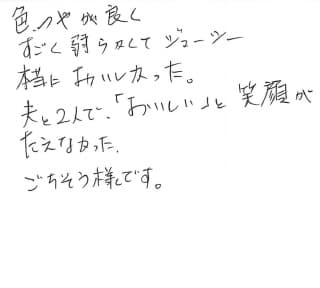 色、つやが良く
すごく弱らかくてジューシー
本当においしかった。
夫と2人で、「おいしい」と笑顔が
たえなかった。
ごちそう様です。